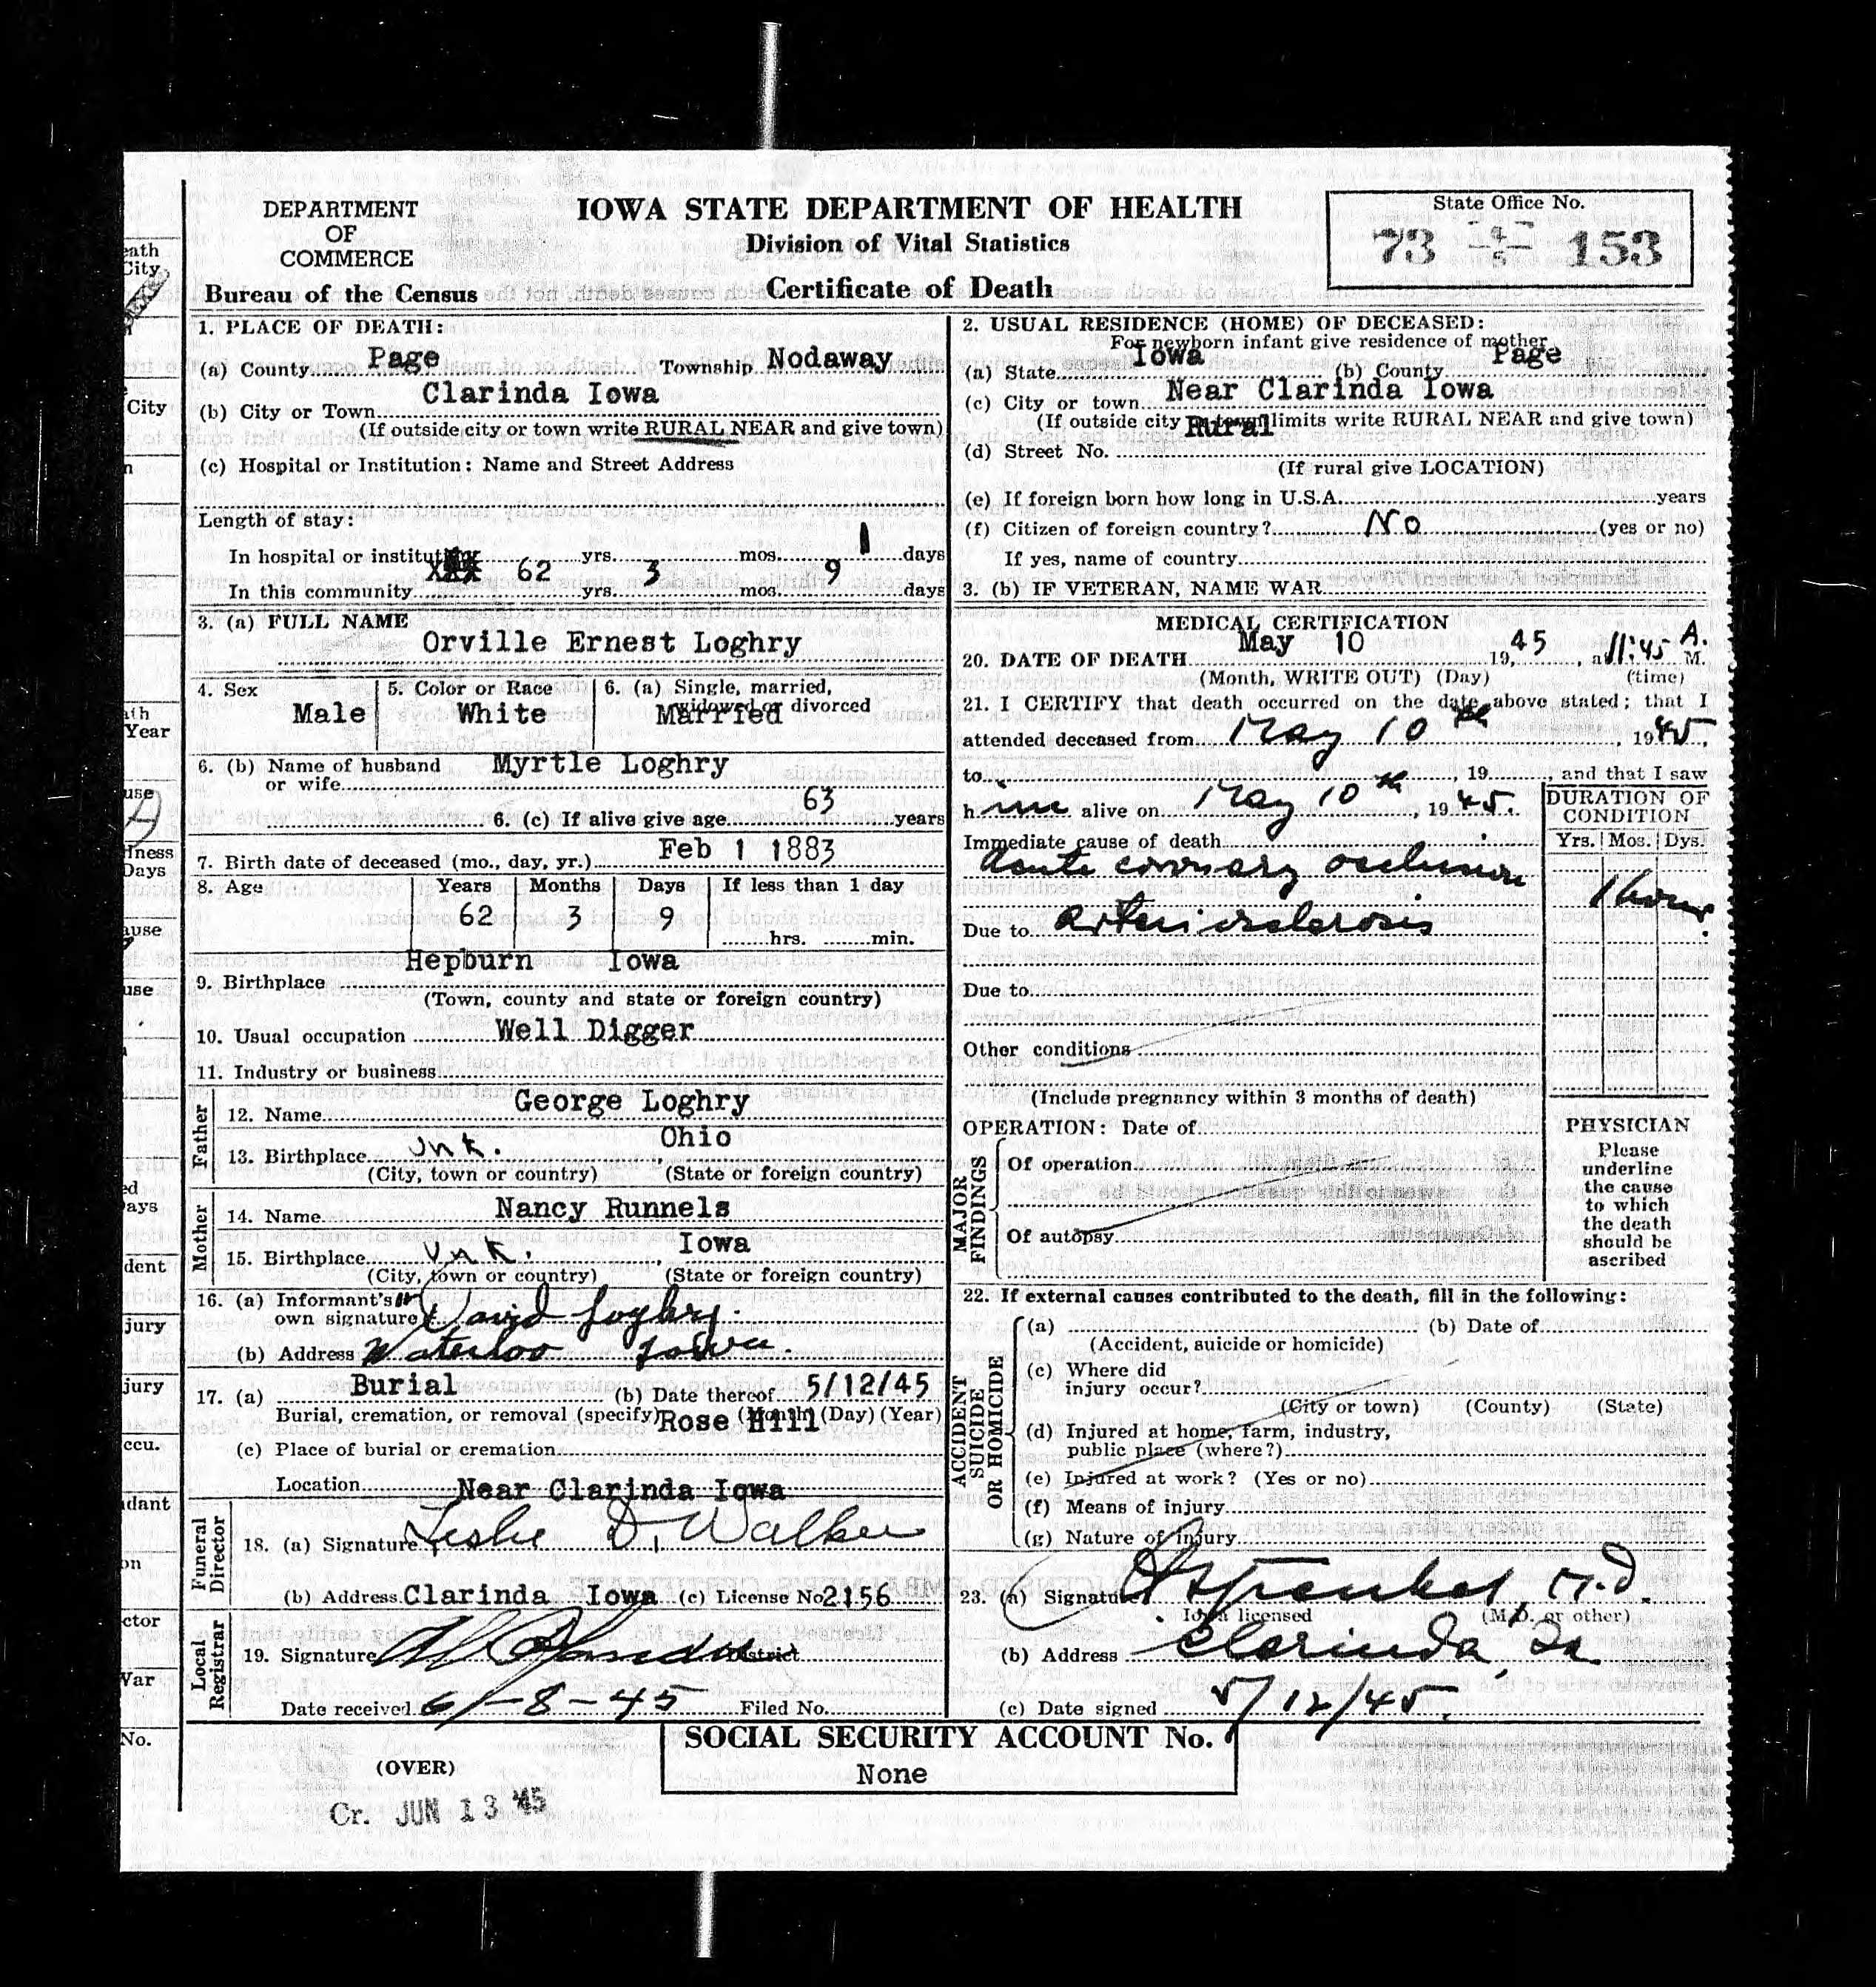 DEPARTMENT
OF
COMMERCE
Bureau of the Census
IOWA STATE DEPARTMENT OF HEALTH
Division of Vital Statistics
Certificate of Death
State Office No.
73 153
1. PLACE OF DEATH:
(a) County Page Township Nodaway
(b) City or Town Clarinda Iowa
(If outside city or town write RURAL NEAR and give town)
(c) Hospital or Institution: Name and Street Address
Length of stay:
In hospital or institution yrs. mos. 1 days
In this community 62 yrs. 3 mos. 9 days
3. (a) FULL NAME
Orville Ernest Loghry
4. Sex
Male
5. Color or Race
White
6. (a) Single, married,
widowed or divorced
Married
6. (b) Name of husband
or wife Myrtle Loghry
6. (c) If alive give age 63 years
7. Birth date of deceased (mo., day, yr.) Feb 1 1883
8. Age Years Months Days If less than 1 day
62 3 9 hrs. min.
9. Birthplace Hepburn Iowa
(Town, county and state or foreign country)
10. Usual occupation Well Digger
11. Industry or business
Father
12. Name George Loghry
13. Birthplace Unk. Ohio
(City, town or country) (State or foreign country)
Mother
14. Name Nancy Runnels
15. Birthplace Unk. Iowa
(City, town or country) (State or foreign country)
16. (a) Informant's
own signature David Loghry.
(b) Address Waterloo Iowa.
17. (a) Burial (b) Date thereof 5/12/45
Burial, cremation, or removal (specify) (Month) (Day) (Year)
(c) Place of burial or cremation Rose Hill
Location Near Clarinda Iowa
Funeral Director
18. (a) Signature Leslie D. Walker
(b) Address Clarinda Iowa (c) License No 2156
Local Registrar
19. Signature District
Date received 6-8-45 Filed No.
2. USUAL RESIDENCE (HOME) OF DECEASED:
For newborn infant give residence of mother
(a) State Iowa (b) County Page
(c) City or town Near Clarinda Iowa
(If outside city or town limits write RURAL NEAR and give town)
(d) Street No. Rural
(If rural give LOCATION)
(e) If foreign born how long in U.S.A. years
(f) Citizen of foreign country? No (yes or no)
If yes, name of country
3. (b) IF VETERAN, NAME WAR
MEDICAL CERTIFICATION
20. DATE OF DEATH May 10 19, 45, at 11:45 A. M.
(Month, WRITE OUT) (Day) (time)
21. I CERTIFY that death occurred on the date above stated; that I
attended deceased from May 10 th, 1945,
to , 19 , and that I saw
him alive on May 10 th, 1945.
DURATION OF
CONDITION
Yrs. Mos. Dys.
Immediate cause of death
Acute coronary occlusion 1 hour
Due to Arteriosclerosis
Due to
Other conditions
(Include pregnancy within 3 months of death)
OPERATION: Date of
MAJOR FINDINGS
Of operation
Of autopsy
PHYSICIAN
Please
underline
the cause
to which
the death
should be
ascribed
22. If external causes contributed to the death, fill in the following:
ACCIDENT SUICIDE OR HOMICIDE
(a) (b) Date of
(Accident, suicide or homicide)
(c) Where did
injury occur?
(City or town) (County) (State)
(d) Injured at home, farm, industry,
public place (where?)
(e) Injured at work? (Yes or no)
(f) Means of injury
(g) Nature of injury
23. (a) Signature M.D.
Iowa licensed (M.D. or other)
(b) Address Clarinda, Ia
(c) Date signed 5/12/45.
SOCIAL SECURITY ACCOUNT No.
None
(OVER)
Cr. JUN 13 '45
eath
City
City
Year
Days
dent
jury
jury
ccu.
dant
ctor
War
No.